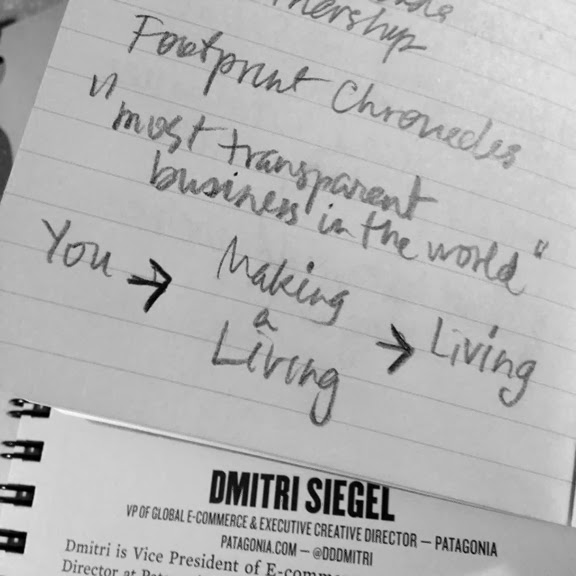 Footprint Chronicles
"most transparent
business in the world"
You → Making a Living → Living
DMITRI SIEGEL
VP OF GLOBAL E-COMMERCE & EXECUTIVE CREATIVE DIRECTOR — PATAGONIA
PATAGONIA.COM — @DDDMITRI
Dmitri is Vice President of E-comme
Director at Pat